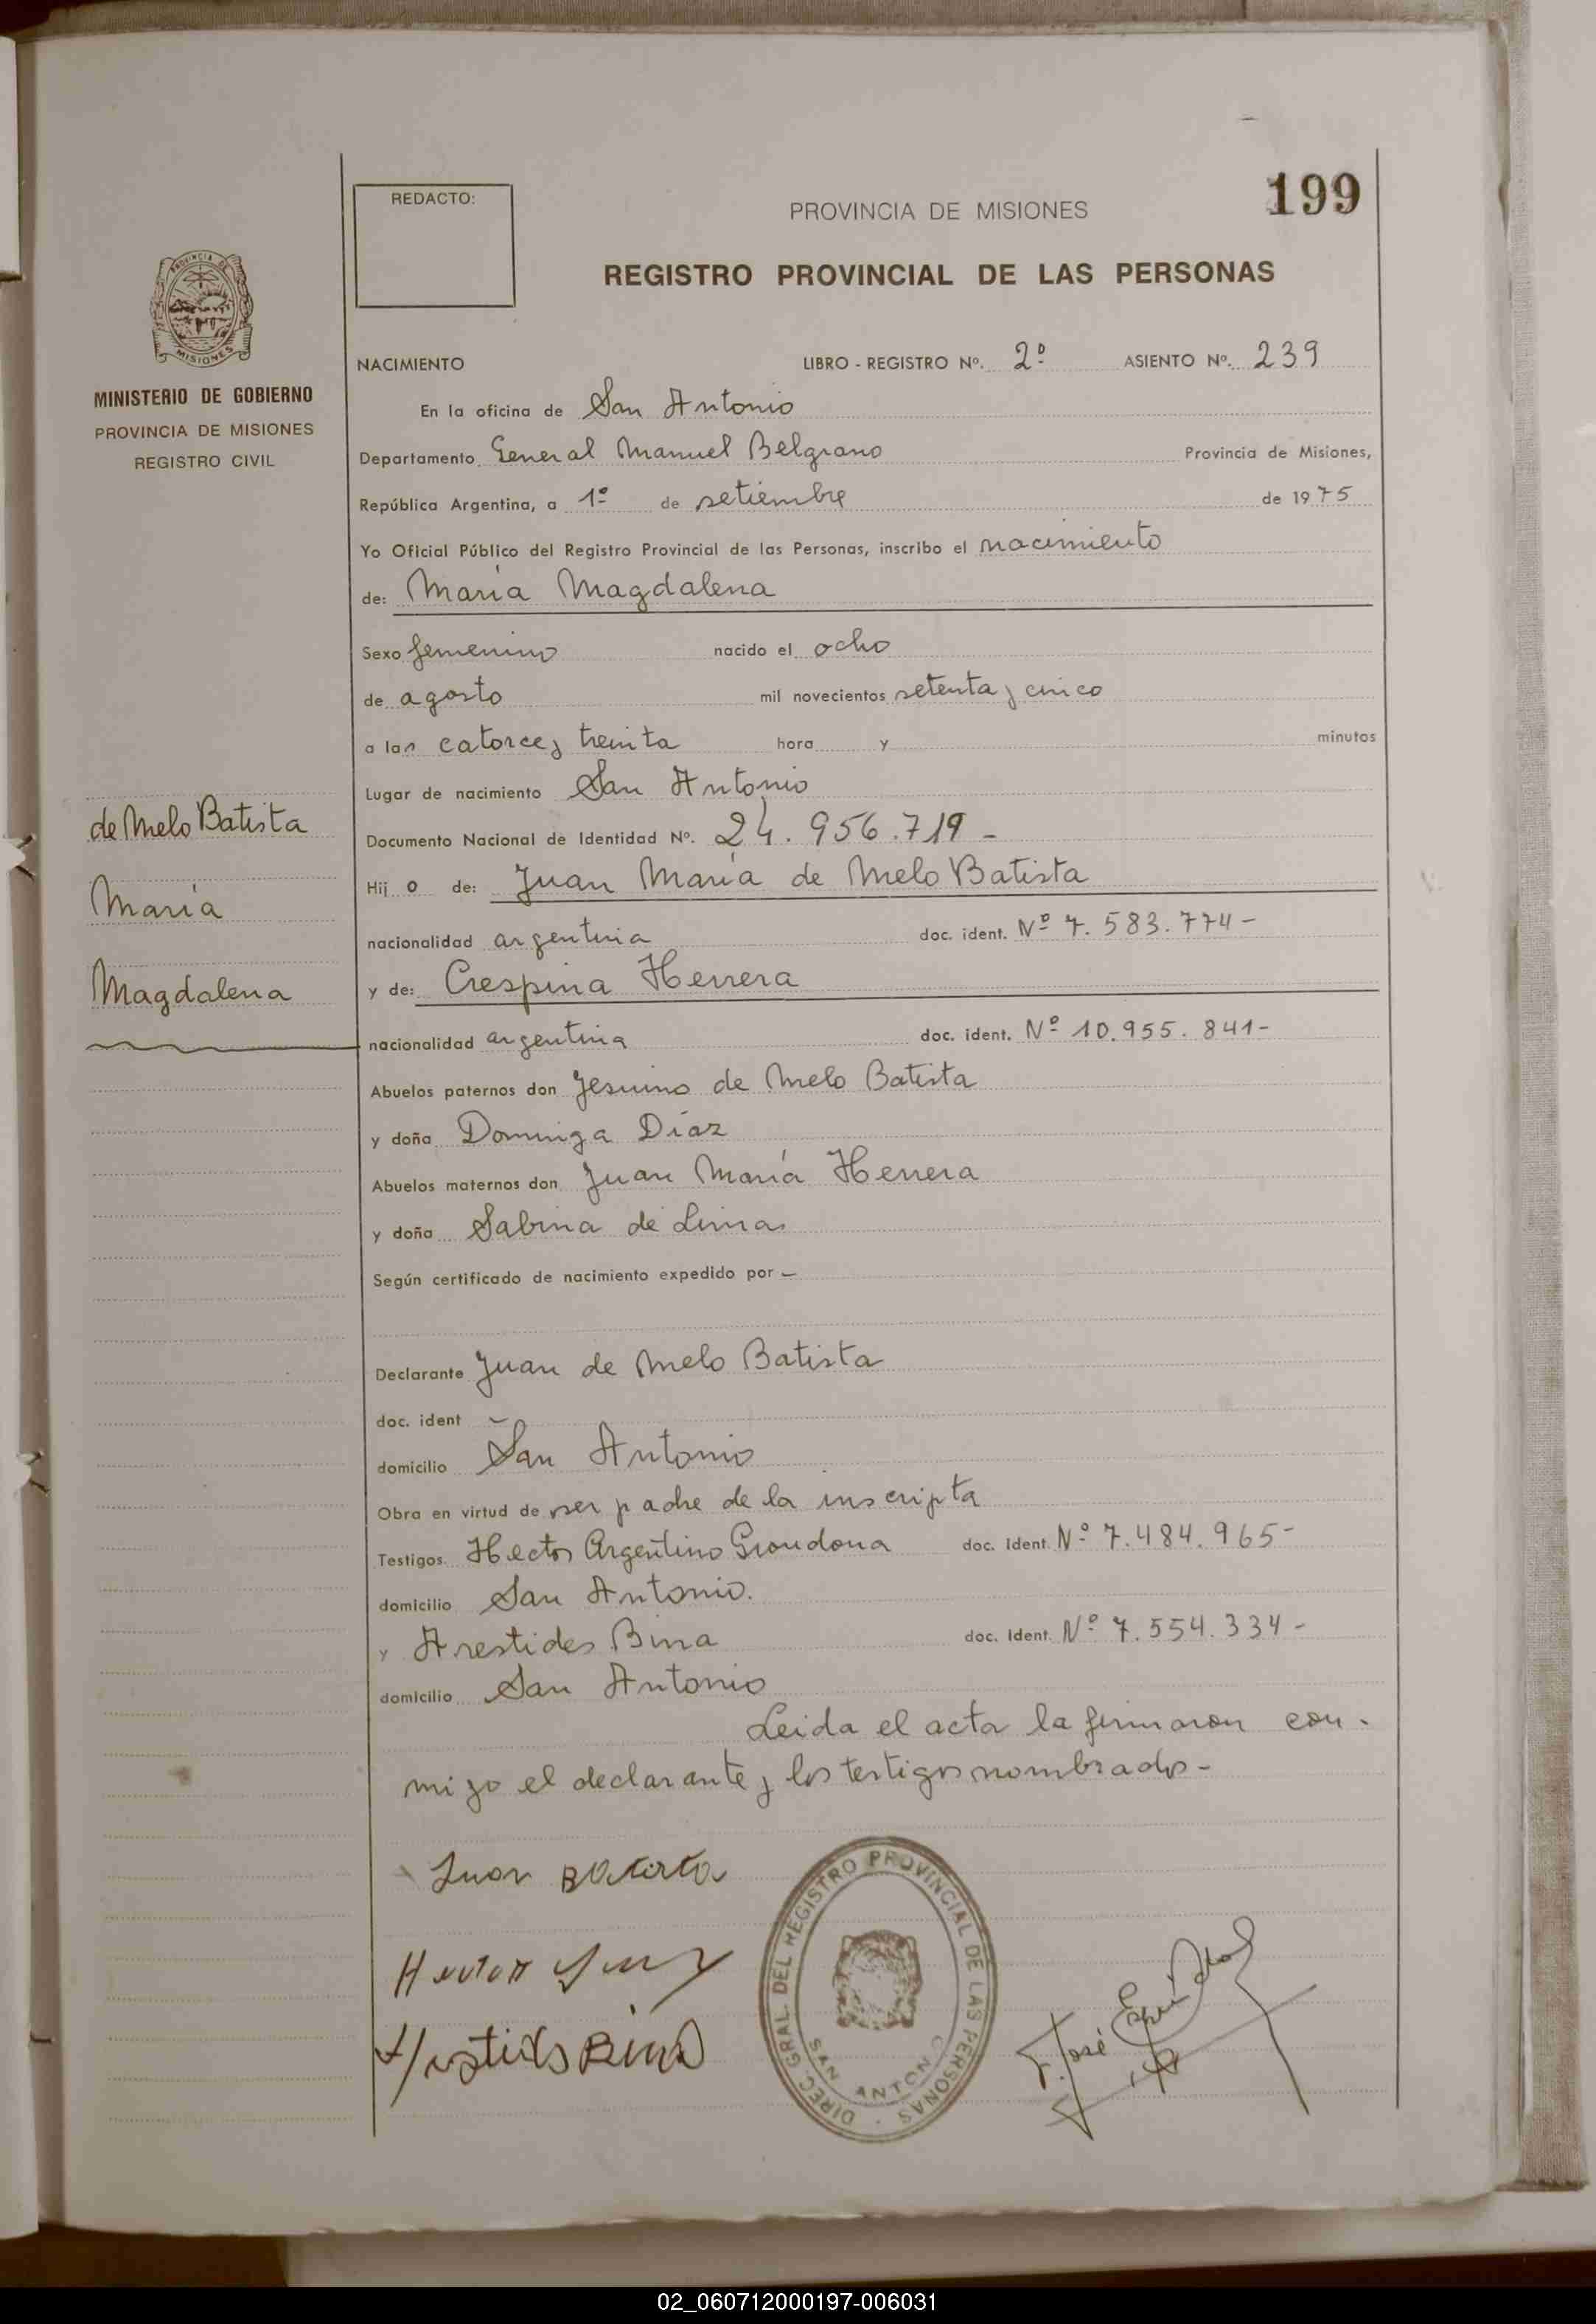 199
REDACTO:
PROVINCIA DE MISIONES
REGISTRO PROVINCIAL DE LAS PERSONAS
PROVINCIA DE
MISIONES
MINISTERIO DE GOBIERNO
PROVINCIA DE MISIONES
REGISTRO CIVIL
NACIMIENTO LIBRO - REGISTRO Nº. 2º ASIENTO Nº. 239
En la oficina de San Antonio
Departamento General Manuel Belgrano Provincia de Misiones,
República Argentina, a 1º de setiembre de 1975
Yo Oficial Público del Registro Provincial de las Personas, inscribo el nacimiento
de: María Magdalena
Sexo femenino nacido el ocho
de agosto mil novecientos setenta y cinco
a las catorce y treinta hora y minutos
Lugar de nacimiento San Antonio
Documento Nacional de Identidad Nº. 24.956.719-
Hij o de: Juan María de Melo Batista
nacionalidad argentina doc. ident. Nº 7.583.774-
y de: Crespina Herrera
nacionalidad argentina doc. ident. Nº 10.955.841-
Abuelos paternos don Jesuino de Melo Batista
y doña Dominga Díaz
Abuelos maternos don Juan María Herrera
y doña Sabina de Lima
Según certificado de nacimiento expedido por -
Declarante Juan de Melo Batista
doc. ident -
domicilio San Antonio
Obra en virtud de ser padre de la inscripta
Testigos Hector Argentino Grondona doc. Ident. Nº 7.484.965-
domicilio San Antonio.
y Arestides Bina doc. Ident. Nº 7.554.334-
domicilio San Antonio
Leida el acta la firmaron con-
migo el declarante y los testigos nombrados-
de Melo Batista
María
Magdalena
Juan Batista
Hector
Arestides Bina
DIREC. GRAL. DEL REGISTRO PROVINCIAL DE LAS PERSONAS
SAN ANTONIO
José
02_060712000197-006031